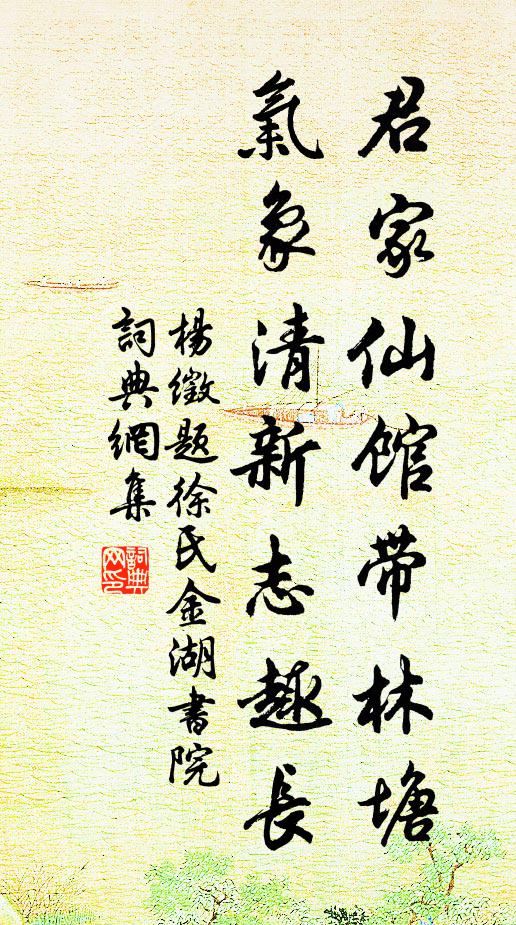 君家仙馆带林塘
氣象清新志趣長
楊徽題徐氏金湖書院
詞典網集
詞典网印